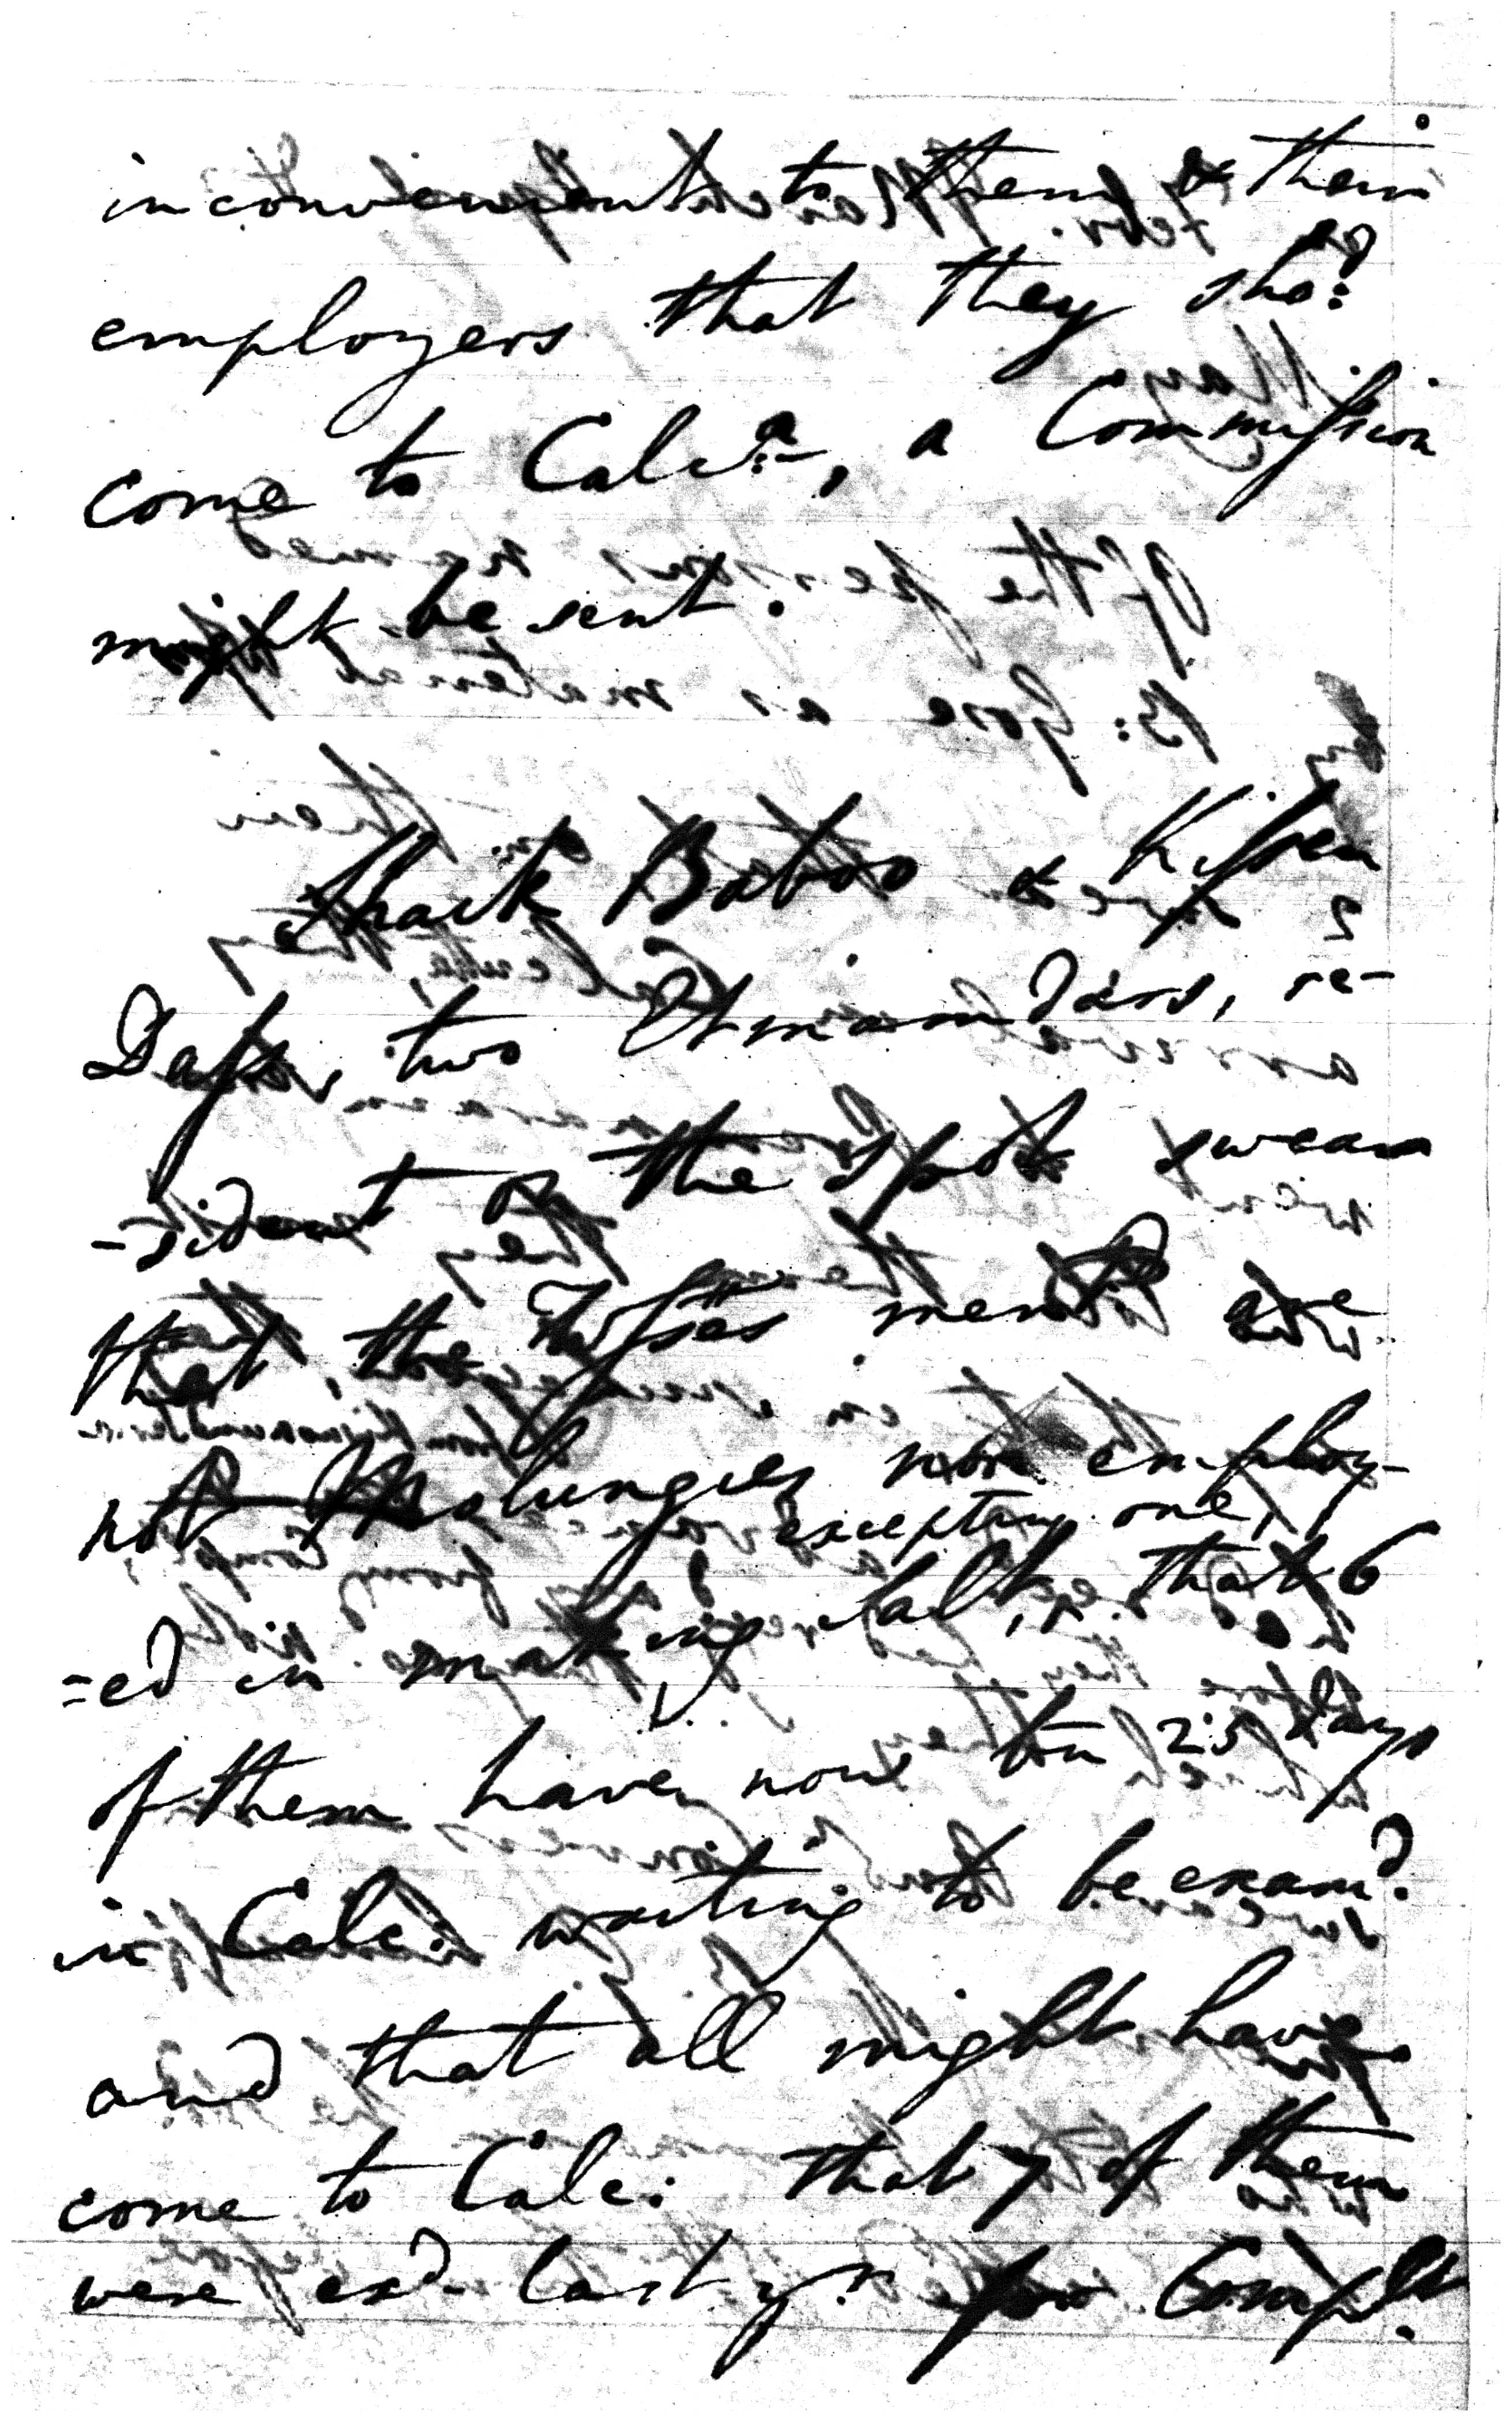 inconvenient to them & their
employers that they sho:d
come to Calc:a, a Commission
might be sent.
Baboo & Kissen
Dass, two Etmaumdars, re-
-sident on the spot swear
that, the Witsses mentd are
not Molungies now employ-
excepting one,
=ed in making salt, that 6
of them have now bn 25 days
in Calc: waiting to be examd.
and that all might have
come to Calc: that 7 of them
were exd last yr. for Complt.